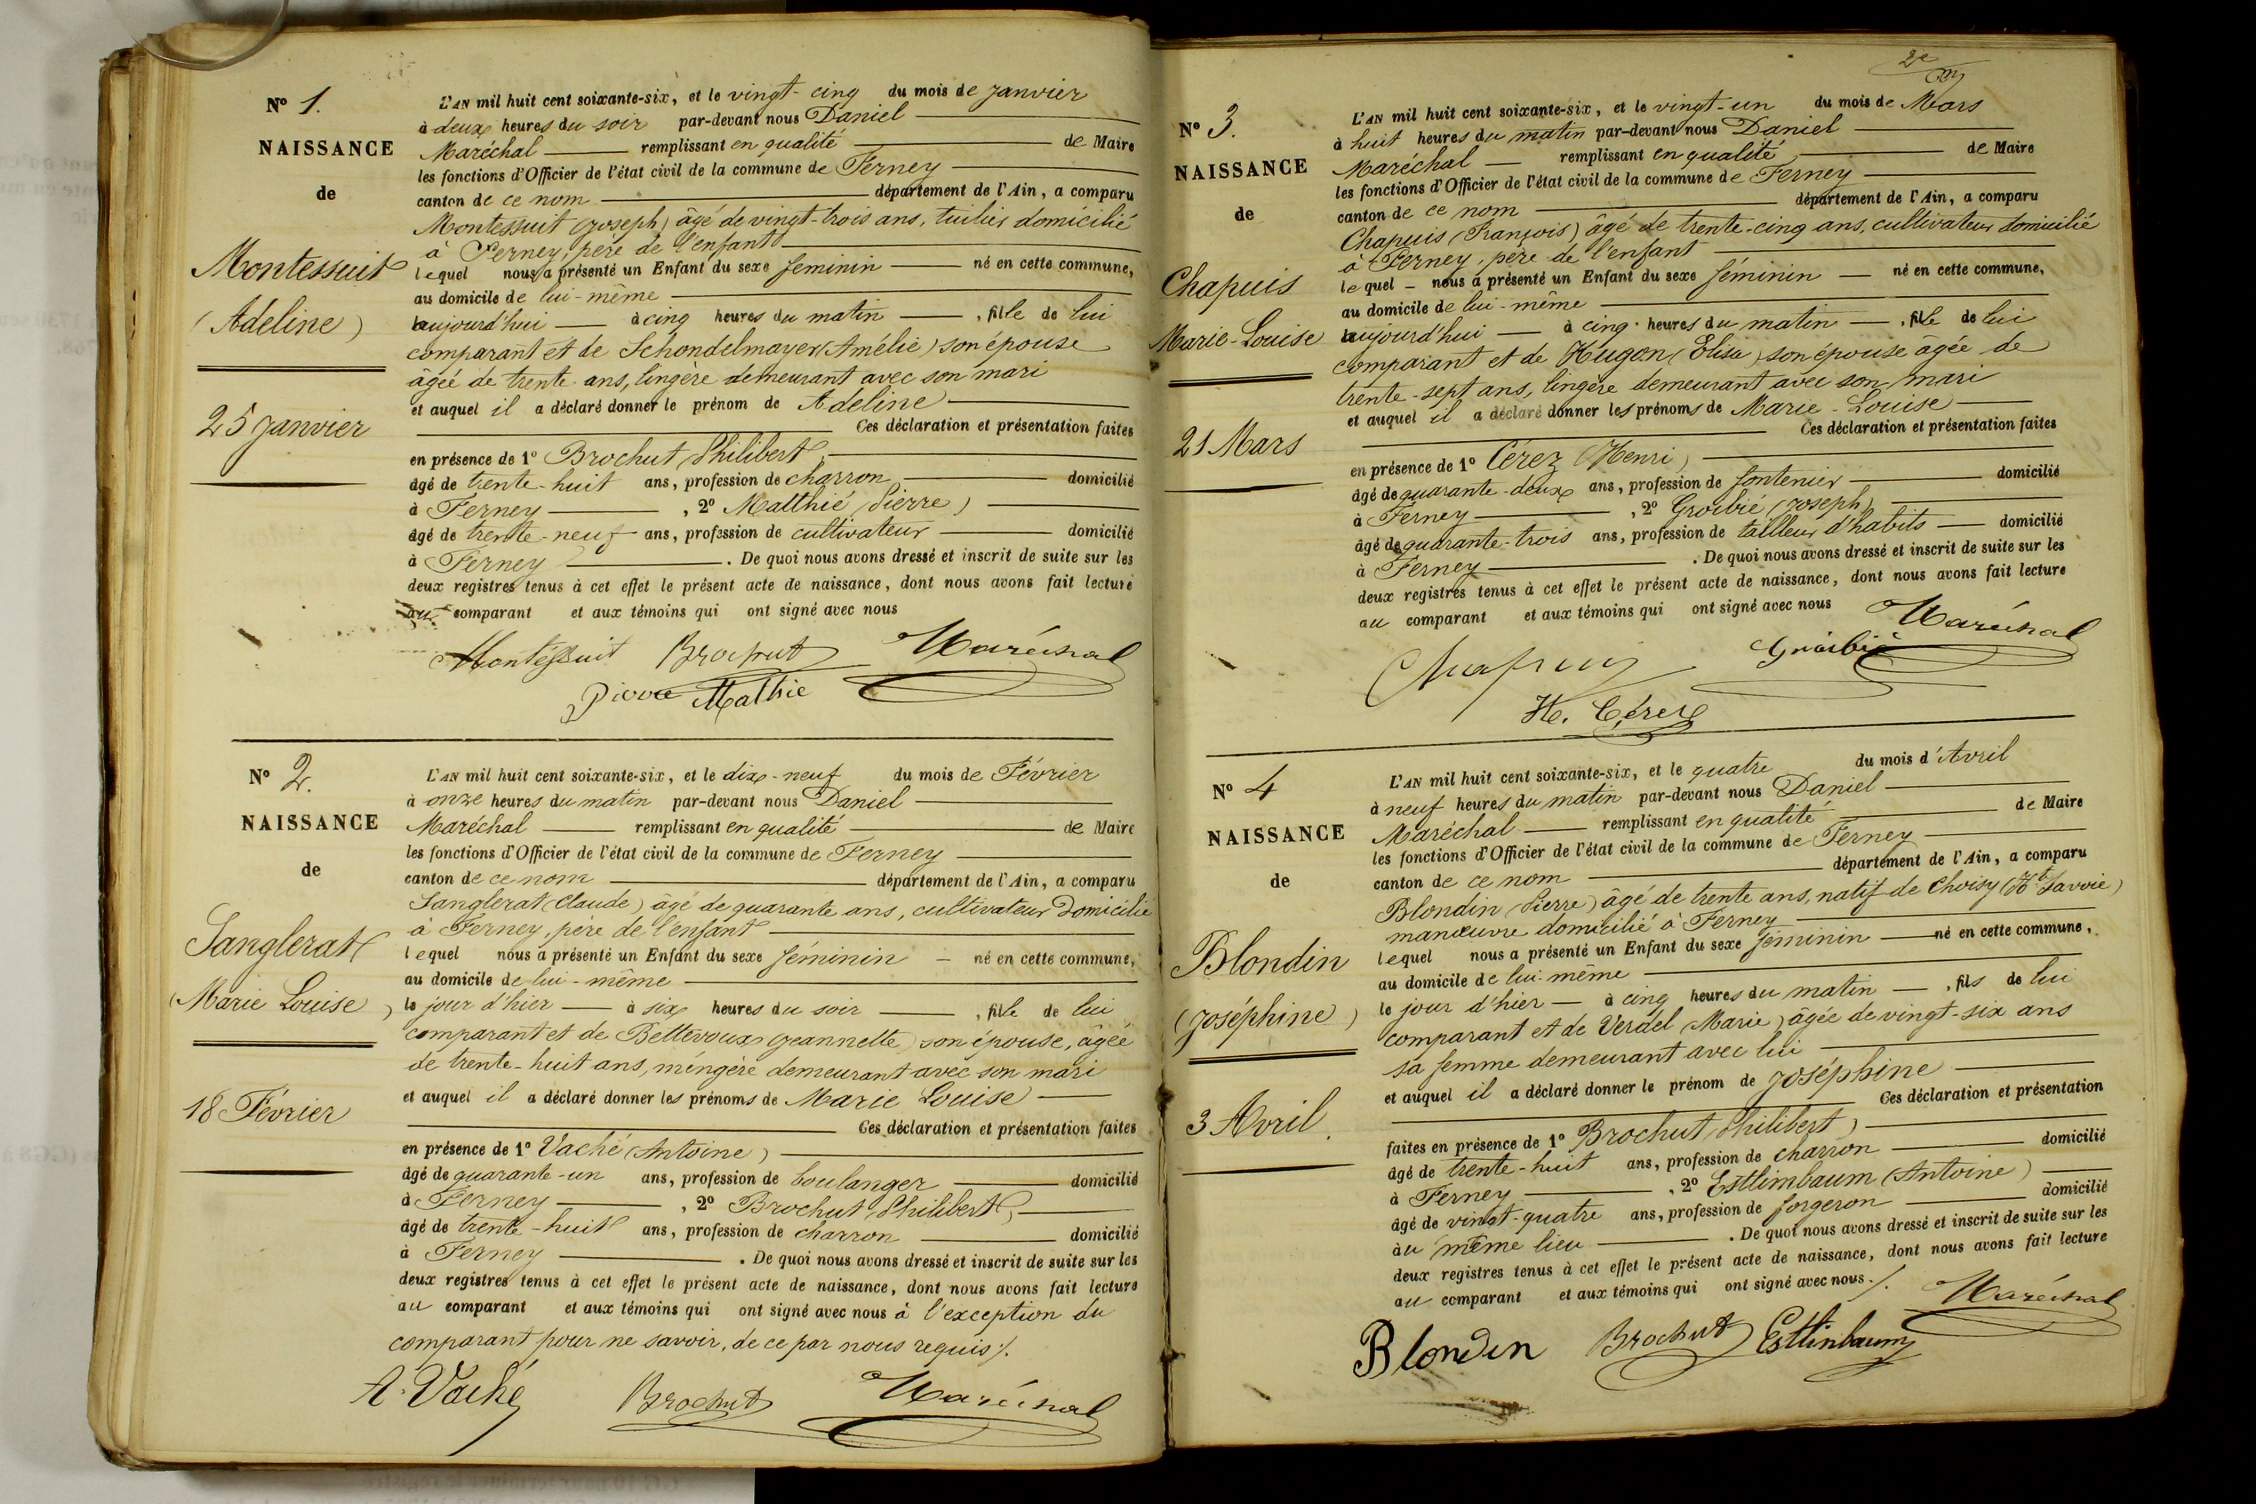 N° 1.
NAISSANCE
de
Montessuit
(Adéline)
25 Janvier
L'AN mil huit cent soixante-six, et le vingt-cinq du mois de Janvier
à deux heures du soir par-devant nous Daniel
Maréchal remplissant en qualité de Maire
les fonctions d'Officier de l'état civil de la commune de Ferney
canton de ce nom département de l'Ain, a comparu
Montessuit (Joseph) âgé de vingt-trois ans, tuilier domicilié
à Ferney, père de l'enfant
lequel nous a présenté un Enfant du sexe féminin né en cette commune,
au domicile de lui-même
aujourd'hui à cinq heures du matin, fille de lui
comparant et de Schondelmayer (Amélie) son épouse
âgée de trente ans, lingère demeurant avec son mari
et auquel il a déclaré donner le prénom de Adeline
Ces déclaration et présentation faites
en présence de 1° Brochut (Philibert)
âgé de trente-huit ans, profession de charron domicilié
à Ferney, 2° Matthié (Pierre)
âgé de trente-neuf ans, profession de cultivateur domicilié
à Ferney. De quoi nous avons dressé et inscrit de suite sur les
deux registres tenus à cet effet le présent acte de naissance, dont nous avons fait lecture
au comparant et aux témoins qui ont signé avec nous
Montessuit Brochut Maréchal
Pierre Mathie
N° 2.
NAISSANCE
de
Sanglerat
(Marie Louise)
18 Février
L'AN mil huit cent soixante-six, et le dix-neuf du mois de Février
à onze heures du matin par-devant nous Daniel
Maréchal remplissant en qualité de Maire
les fonctions d'Officier de l'état civil de la commune de Ferney
canton de ce nom département de l'Ain, a comparu
Sanglerat (Claude) âgé de quarante ans, cultivateur domicilié
à Ferney, père de l'enfant
lequel nous a présenté un Enfant du sexe féminin né en cette commune,
au domicile de lui-même
le jour d'hier à six heures du soir, fille de lui
comparant et de Bellevoux (Jeannette) son épouse, âgée
de trente-huit ans, méngère demeurant avec son mari
et auquel il a déclaré donner les prénoms de Marie Louise
Ces déclaration et présentation faites
en présence de 1° Vaché (Antoine)
âgé de quarante-un ans, profession de boulanger domicilié
à Ferney, 2° Brochut (Philibert)
âgé de trente-huit ans, profession de charron domicilié
à Ferney. De quoi nous avons dressé et inscrit de suite sur les
deux registres tenus à cet effet le présent acte de naissance, dont nous avons fait lecture
au comparant et aux témoins qui ont signé avec nous à l'exception du
comparant pour ne savoir, de ce par nous requis /.
A. Vaché Brochut Maréchal
2e
N° 3.
NAISSANCE
de
Chapuis
Marie-Louise
21 Mars
L'AN mil huit cent soixante-six, et le vingt-un du mois de Mars
à huit heures du matin par-devant nous Daniel
Maréchal remplissant en qualité de Maire
les fonctions d'Officier de l'état civil de la commune de Ferney
canton de ce nom département de l'Ain, a comparu
Chapuis (François) âgé de trente-cinq ans, cultivateur domicilié
à Ferney, père de l'enfant
lequel nous a présenté un Enfant du sexe féminin né en cette commune,
au domicile de lui-même
aujourd'hui à cinq heures du matin, fille de lui
comparant et de Hugon (Elisa) son épouse âgée de
trente-sept ans, lingère demeurant avec son mari
et auquel il a déclaré donner les prénoms de Marie-Louise
Ces déclaration et présentation faites
en présence de 1° Cérez (Henri)
âgé de quarante-deux ans, profession de fontenier domicilié
à Ferney, 2° Groibié (Joseph)
âgé de quarante-trois ans, profession de tailleur d'habits domicilié
à Ferney. De quoi nous avons dressé et inscrit de suite sur les
deux registres tenus à cet effet le présent acte de naissance, dont nous avons fait lecture
au comparant et aux témoins qui ont signé avec nous
Maréchal
Chapuis Groibié
H. Cérez
N° 4
NAISSANCE
de
Blondin
(Joséphine)
3 Avril.
L'AN mil huit cent soixante-six, et le quatre du mois d'Avril
à neuf heures du matin par-devant nous Daniel
Maréchal remplissant en qualité de Maire
les fonctions d'Officier de l'état civil de la commune de Ferney
canton de ce nom département de l'Ain, a comparu
Blondin (Pierre) âgé de trente ans, natif de Choisy (Hte Savoie)
manœuvre domicilié à Ferney
lequel nous a présenté un Enfant du sexe féminin né en cette commune,
au domicile de lui-même
le jour d'hier à cinq heures du matin, fils de lui
comparant et de Verdel (Marie) âgée de vingt-six ans
sa femme demeurant avec lui
et auquel il a déclaré donner le prénom de Joséphine
Ces déclaration et présentation
faites en présence de 1° Brochut (Philibert)
âgé de trente-huit ans, profession de charron domicilié
à Ferney, 2° Estlimbaum (Antoine)
âgé de vingt-quatre ans, profession de forgeron domicilié
au même lieu. De quoi nous avons dressé et inscrit de suite sur les
deux registres tenus à cet effet le présent acte de naissance, dont nous avons fait lecture
au comparant et aux témoins qui ont signé avec nous ./.
Maréchal
Blondin Brochut Estlinbaum